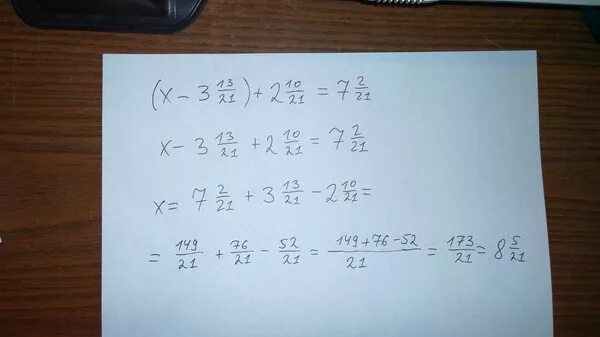 (x − 3 13/21) + 2 10/21 = 7 2/21
x − 3 13/21 + 2 10/21 = 7 2/21
x = 7 2/21 + 3 13/21 − 2 10/21 =
= 149/21 + 76/21 − 52/21 = 149+76−52/21 = 173/21 = 8 5/21